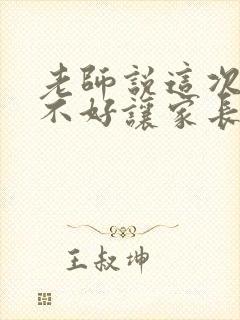 老師說這次
不好讓家長
王叔坤